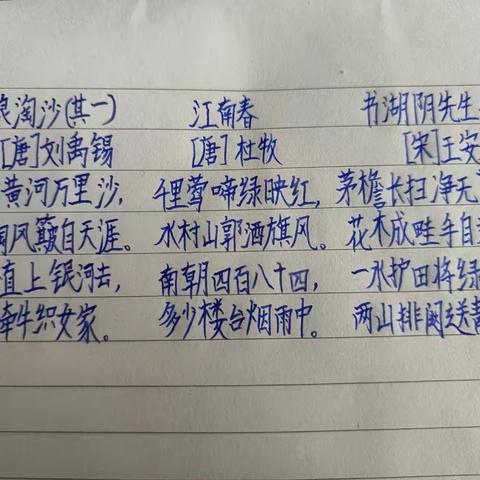 浪淘沙(其一)
[唐]刘禹锡
黄河万里沙，
淘风簸自天涯。
直上银河去，
牵牛织女家。
江南春
[唐]杜牧
千里莺啼绿映红，
水村山郭酒旗风。
南朝四百八十四，
多少楼台烟雨中。
书湖阴先生
[宋]王安
茅檐长扫净无
花木成畦手自
一水护田将绿
两山排闼送青